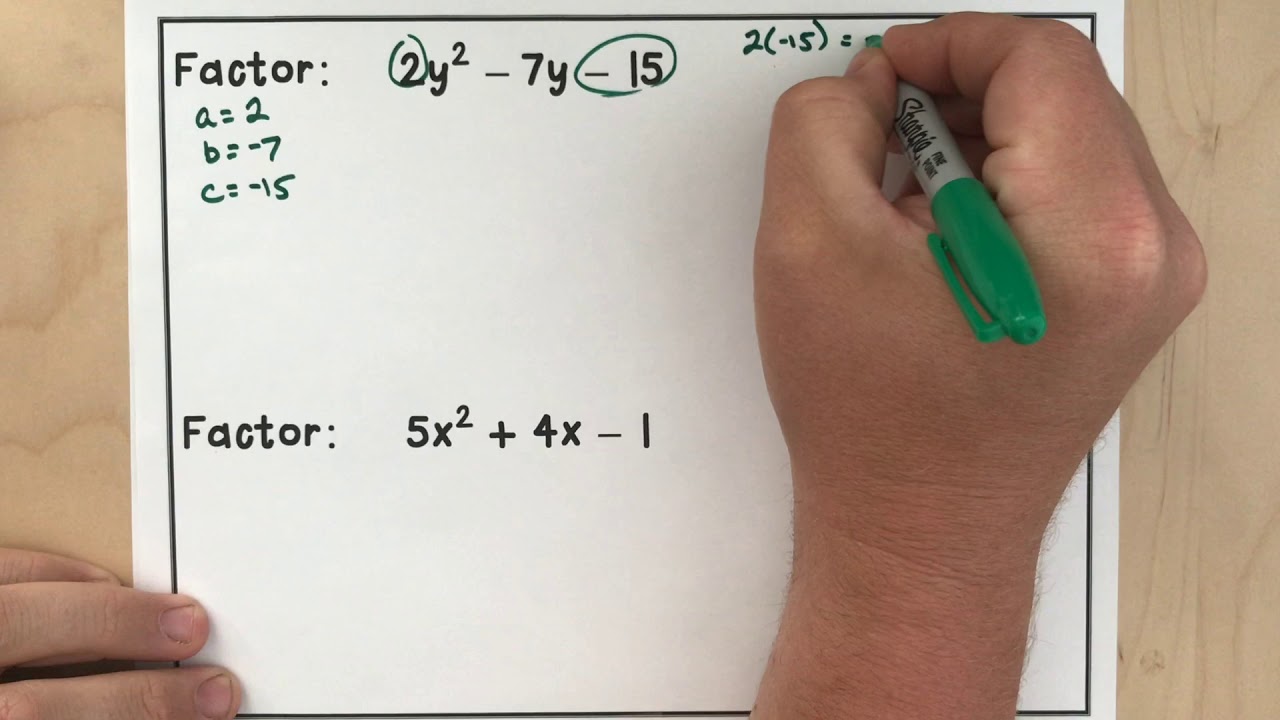 Factor: 2y² – 7y – 15
2(-15) =
a = 2
b = -7
c = -15
Sharpie
FINE POINT
Factor: 5x² + 4x – 1